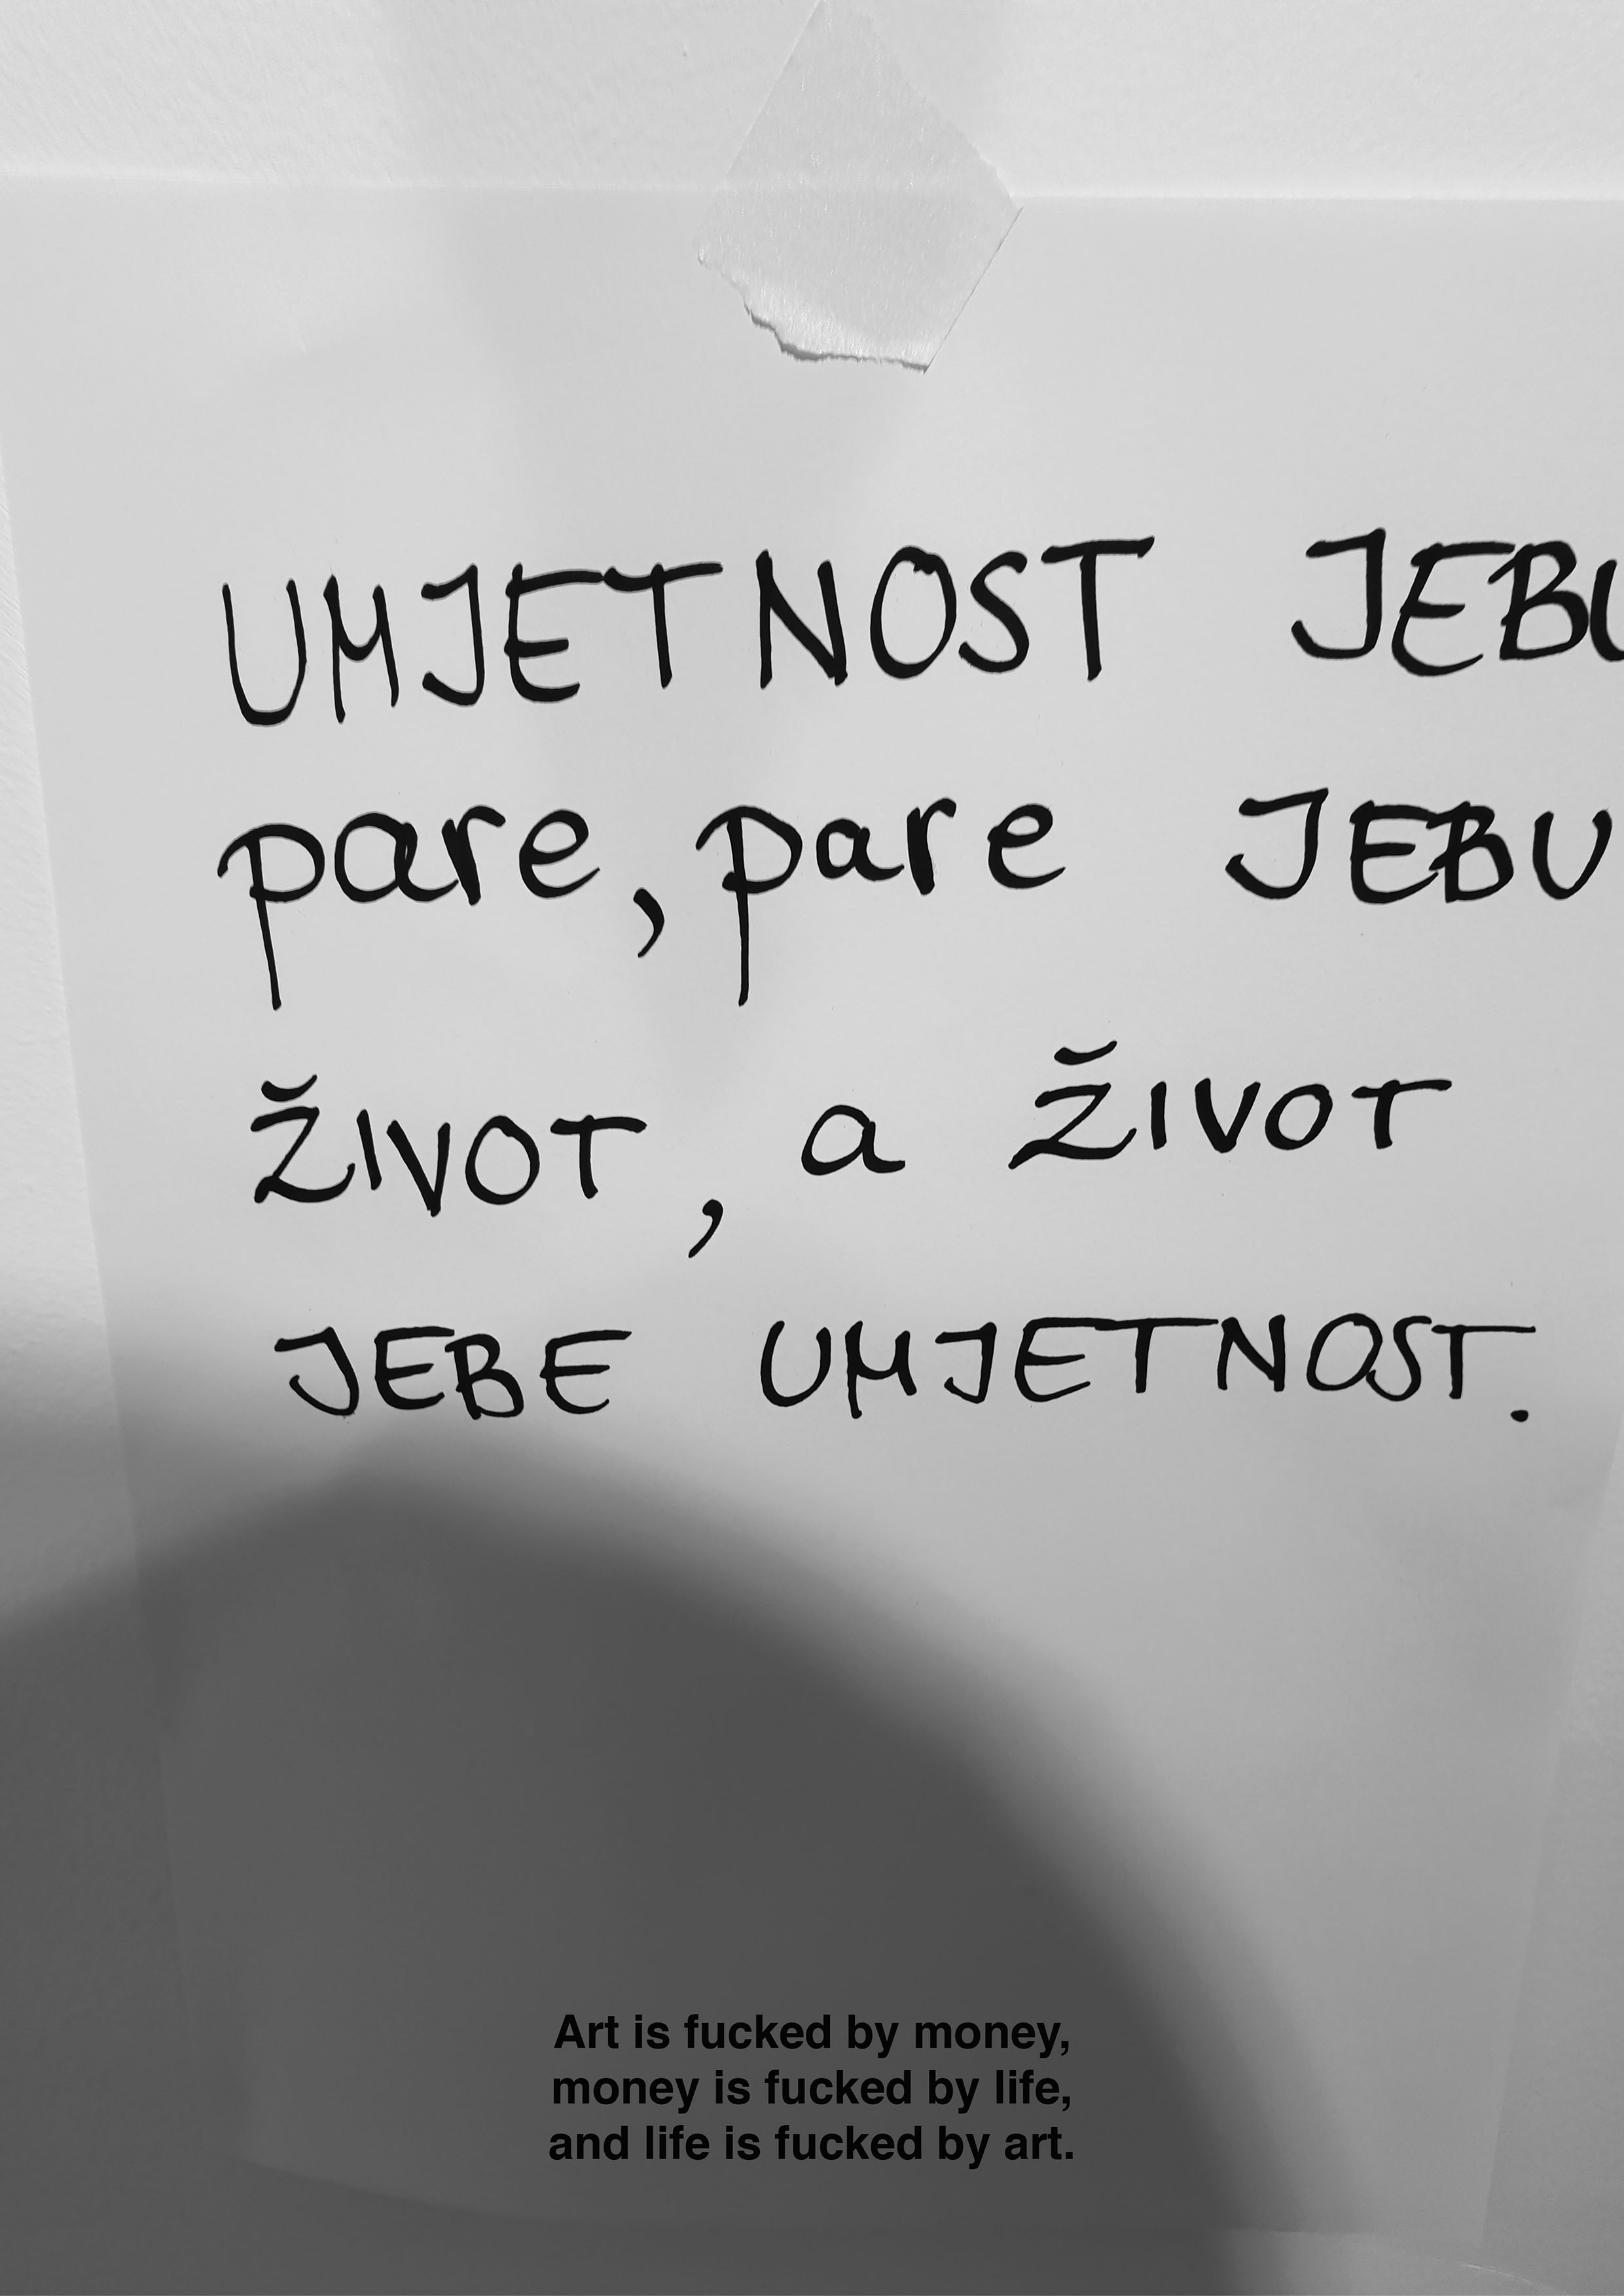 UMJETNOST JEBU
pare, pare JEBU
ŽIVOT, a ŽIVOT
JEBE UMJETNOST.
Art is fucked by money,
money is fucked by life,
and life is fucked by art.